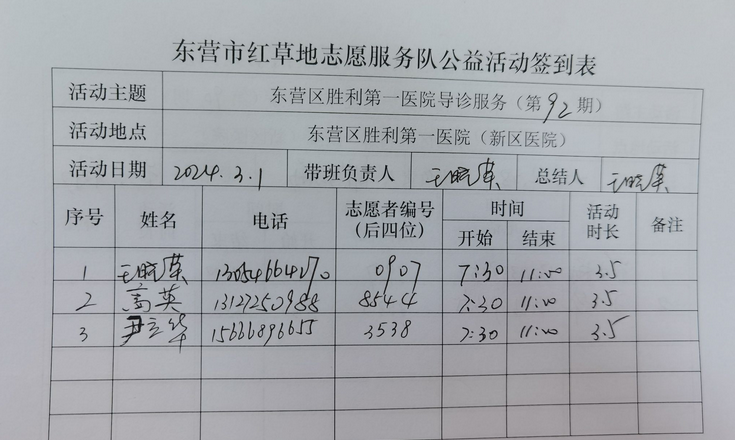 东营市红草地志愿服务队公益活动签到表
活动主题 东营区胜利第一医院导诊服务（第92期）
活动地点 东营区胜利第一医院（新区医院）
活动日期 2024.3.1 带班负责人 王晓英 总结人 王晓英
序号 姓名 电话 志愿者编号（后四位） 时间 开始 结束 活动时长 备注
1 王晓英 13054664270 0907 7:30 11:00 3.5
2 高英 13127250988 8544 7:30 11:00 3.5
3 尹立华 15666896655 3538 7:30 11:00 3.5